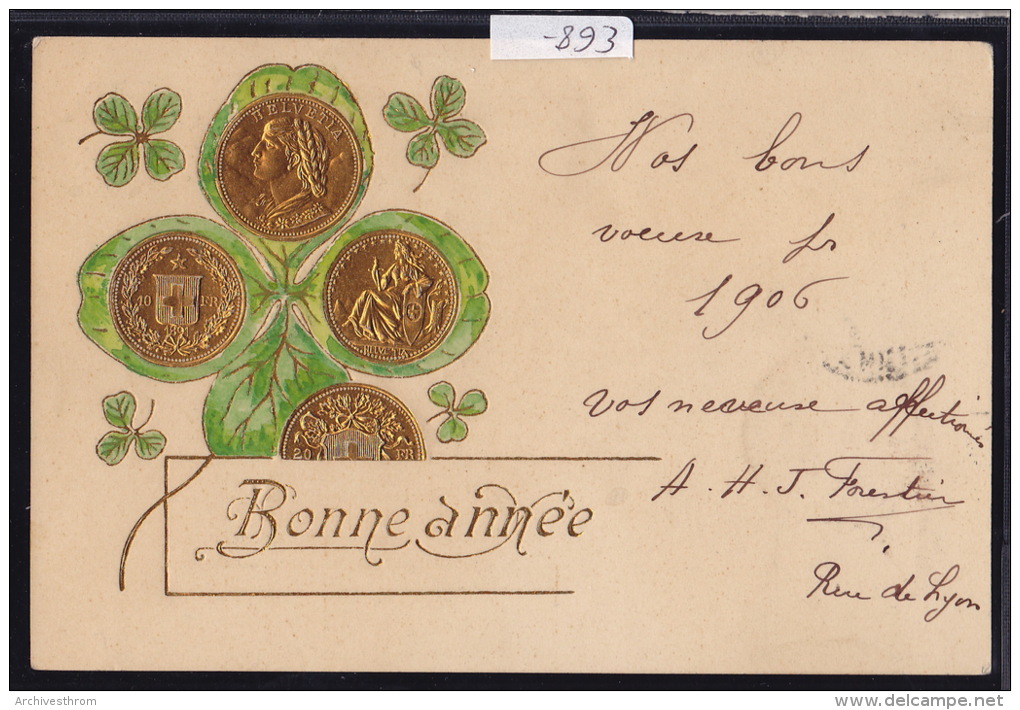 -893
HELVETIA
10 FR
HELVETIA
20 FR
Bonne année
Nos bons
voeuse pr
1906
vos neveuse affectionés
A. H. J. Forestier
Rue de Lyon
Archivesthrom
http://www.delcampe.net